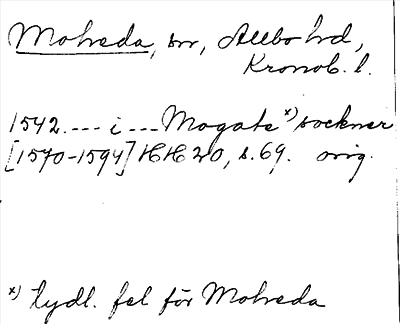 Moheda, sn, Allbo hd,
Kronob. l.
1542.---- i --- Mogate x) sockner
[1570-1594] HH 20, s. 69. orig.
x) tydl. fel för Moheda